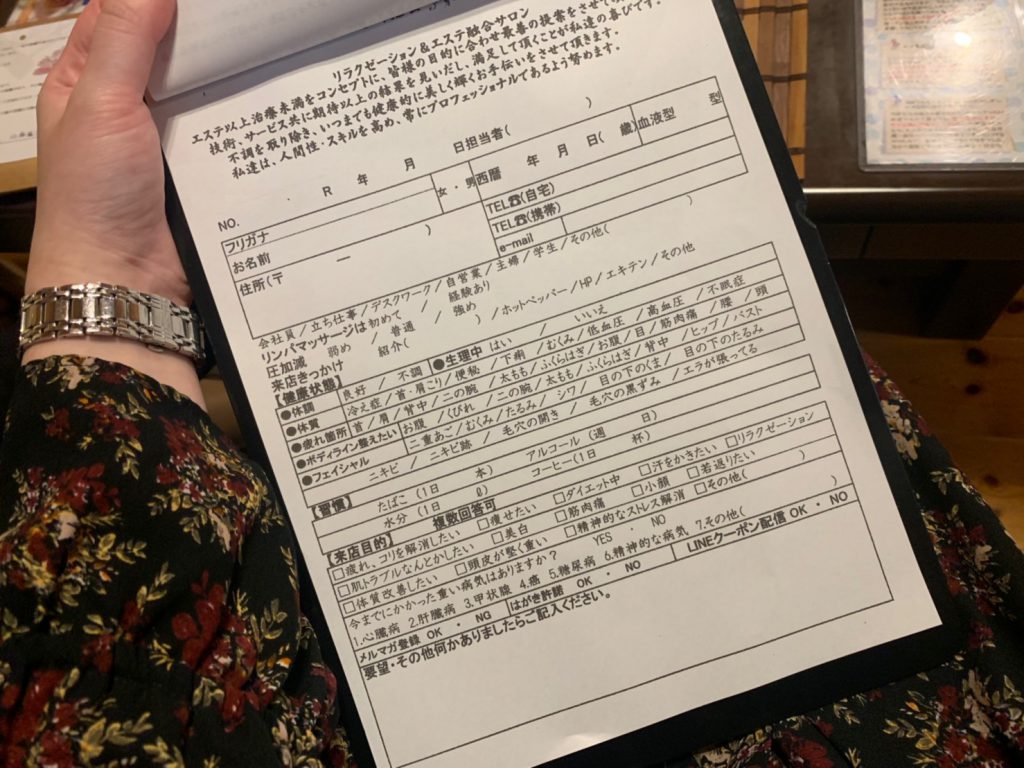 リラクゼーション&エステ融合サロン
エステ以上治療未満をコンセプトに、皆様の目的に合わせ最善の提案をさせて
技術、サービス共に期待以上の結果を見いだし、満足して頂くことが私達の喜びです。
不調を取り除き、いつまでも健康的に美しく輝くお手伝いをさせて頂きます。
私達は、人間性・スキルを高め、常にプロフェッショナルであるよう努めます。
R 年 月 日担当者( )
NO.
フリガナ 女・男 西暦 年 月 日( 歳) 血液型 型
お名前 TEL☎(自宅)
TEL☎(携帯)
住所(〒 ー ) e-mail
会社員/立ち仕事/デスクワーク/自営業/主婦/学生/その他( )
リンパマッサージは初めて / 経験あり
圧加減 弱め / 普通 / 強め
来店きっかけ 紹介( )/ホットペッパー/HP/エキテン/その他
【健康状態】 ●生理中 はい / いいえ
●体調 良好 / 不調
●体質 冷え症/首・肩こり/便秘/下痢/むくみ/低血圧/高血圧/不眠症
●疲れ箇所 首/肩/背中/二の腕/太もも/ふくらはぎ/お腹/目/筋肉痛/腰/頭
●ボディライン整えたい お腹/くびれ/二の腕/太もも/ふくらはぎ/背中/ヒップ/バスト
●フェイシャル 二重あご/むくみ/たるみ/シワ/目の下のくま/目の下のたるみ
ニキビ/ニキビ跡/毛穴の開き/毛穴の黒ずみ/エラが張ってる
【習慣】 たばこ(1日 本) アルコール(週 日)
水分(1日 ℓ) コーヒー(1日 杯)
【来店目的】 複数回答可
□疲れ、コリを解消したい □痩せたい □ダイエット中 □汗をかきたい □リラクゼーション
□肌トラブルなんとかしたい □美白 □筋肉痛 □小顔 □若返りたい
□体質改善したい □頭皮が堅く重い □精神的なストレス解消 □その他( )
今までにかかった重い病気はありますか? YES ・ NO
1.心臓病 2.肝臓病 3.甲状腺 4.癌 5.糖尿病 6.精神的な病気 7.その他( )
メルマガ登録 OK ・ NG はがき許諾 OK ・ NO LINEクーポン配信 OK ・ NO
要望・その他何かありましたらご記入ください。